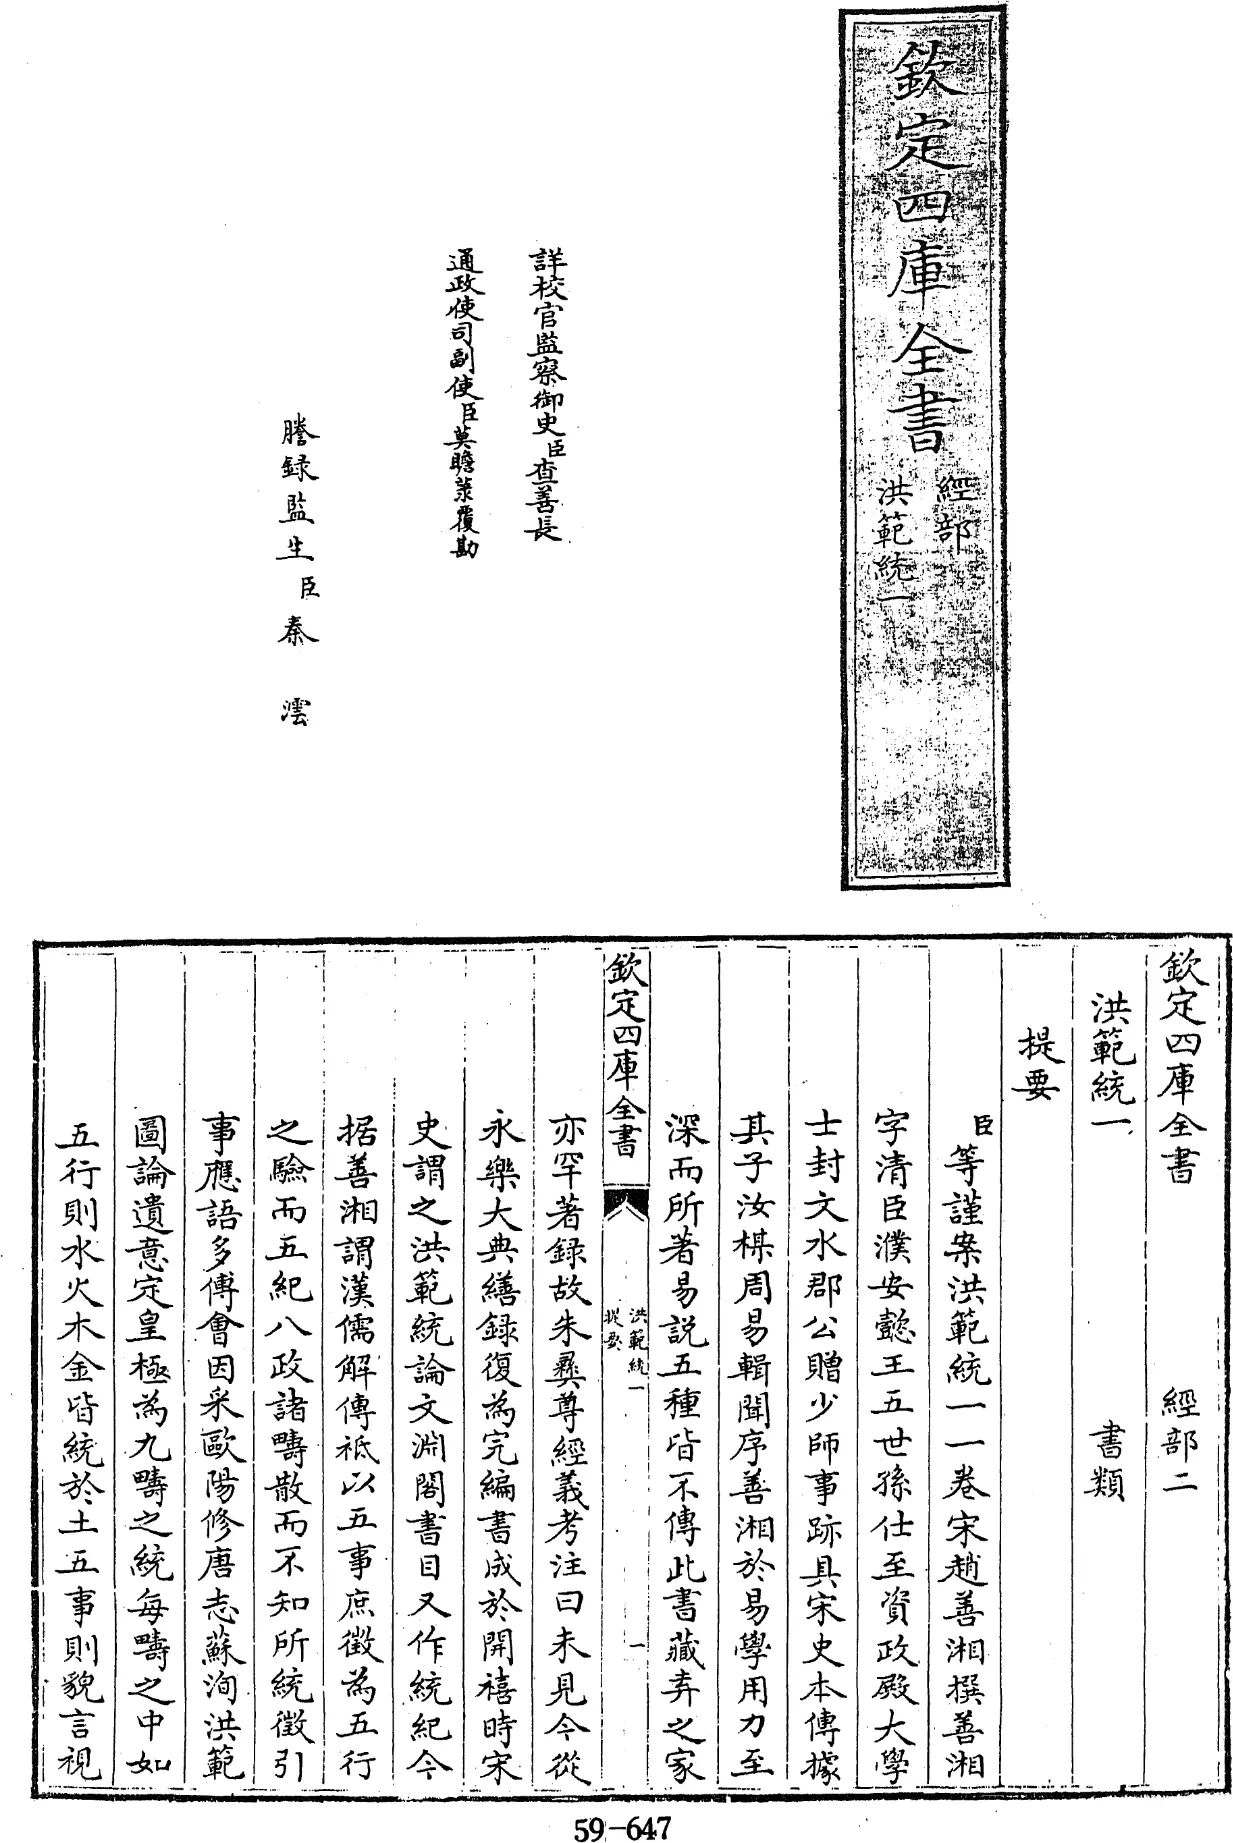 欽定四庫全書
經部
洪範統一
詳校官監察御史臣查善長
通政使司副使臣莫瞻菉覆勘
謄録監生臣秦澐
欽定四庫全書 經部二
洪範統一 書類
提要
臣等謹案洪範統一一卷宋趙善湘撰善湘
字清臣濮安懿王五世孫仕至資政殿大學
士封文水郡公贈少師事跡具宋史本傳據
其子汝楳周易輯聞序善湘於易學用力至
深而所著易説五種皆不傳此書藏弆之家
欽定四庫全書
洪範統一
提要
一
亦罕著録故朱彛尊經義考注曰未見今從
永樂大典繕録復為完編書成於開禧時宋
史謂之洪範統論文淵閣書目又作統紀今
据善湘謂漢儒解傳祇以五事庶徵為五行
之驗而五紀八政諸疇散而不知所統徵引
事應語多傅會因采歐陽修唐志蘇洵洪範
圖論遺意定皇極為九疇之統每疇之中如
五行則水火木金皆統於土五事則貌言視
59-647